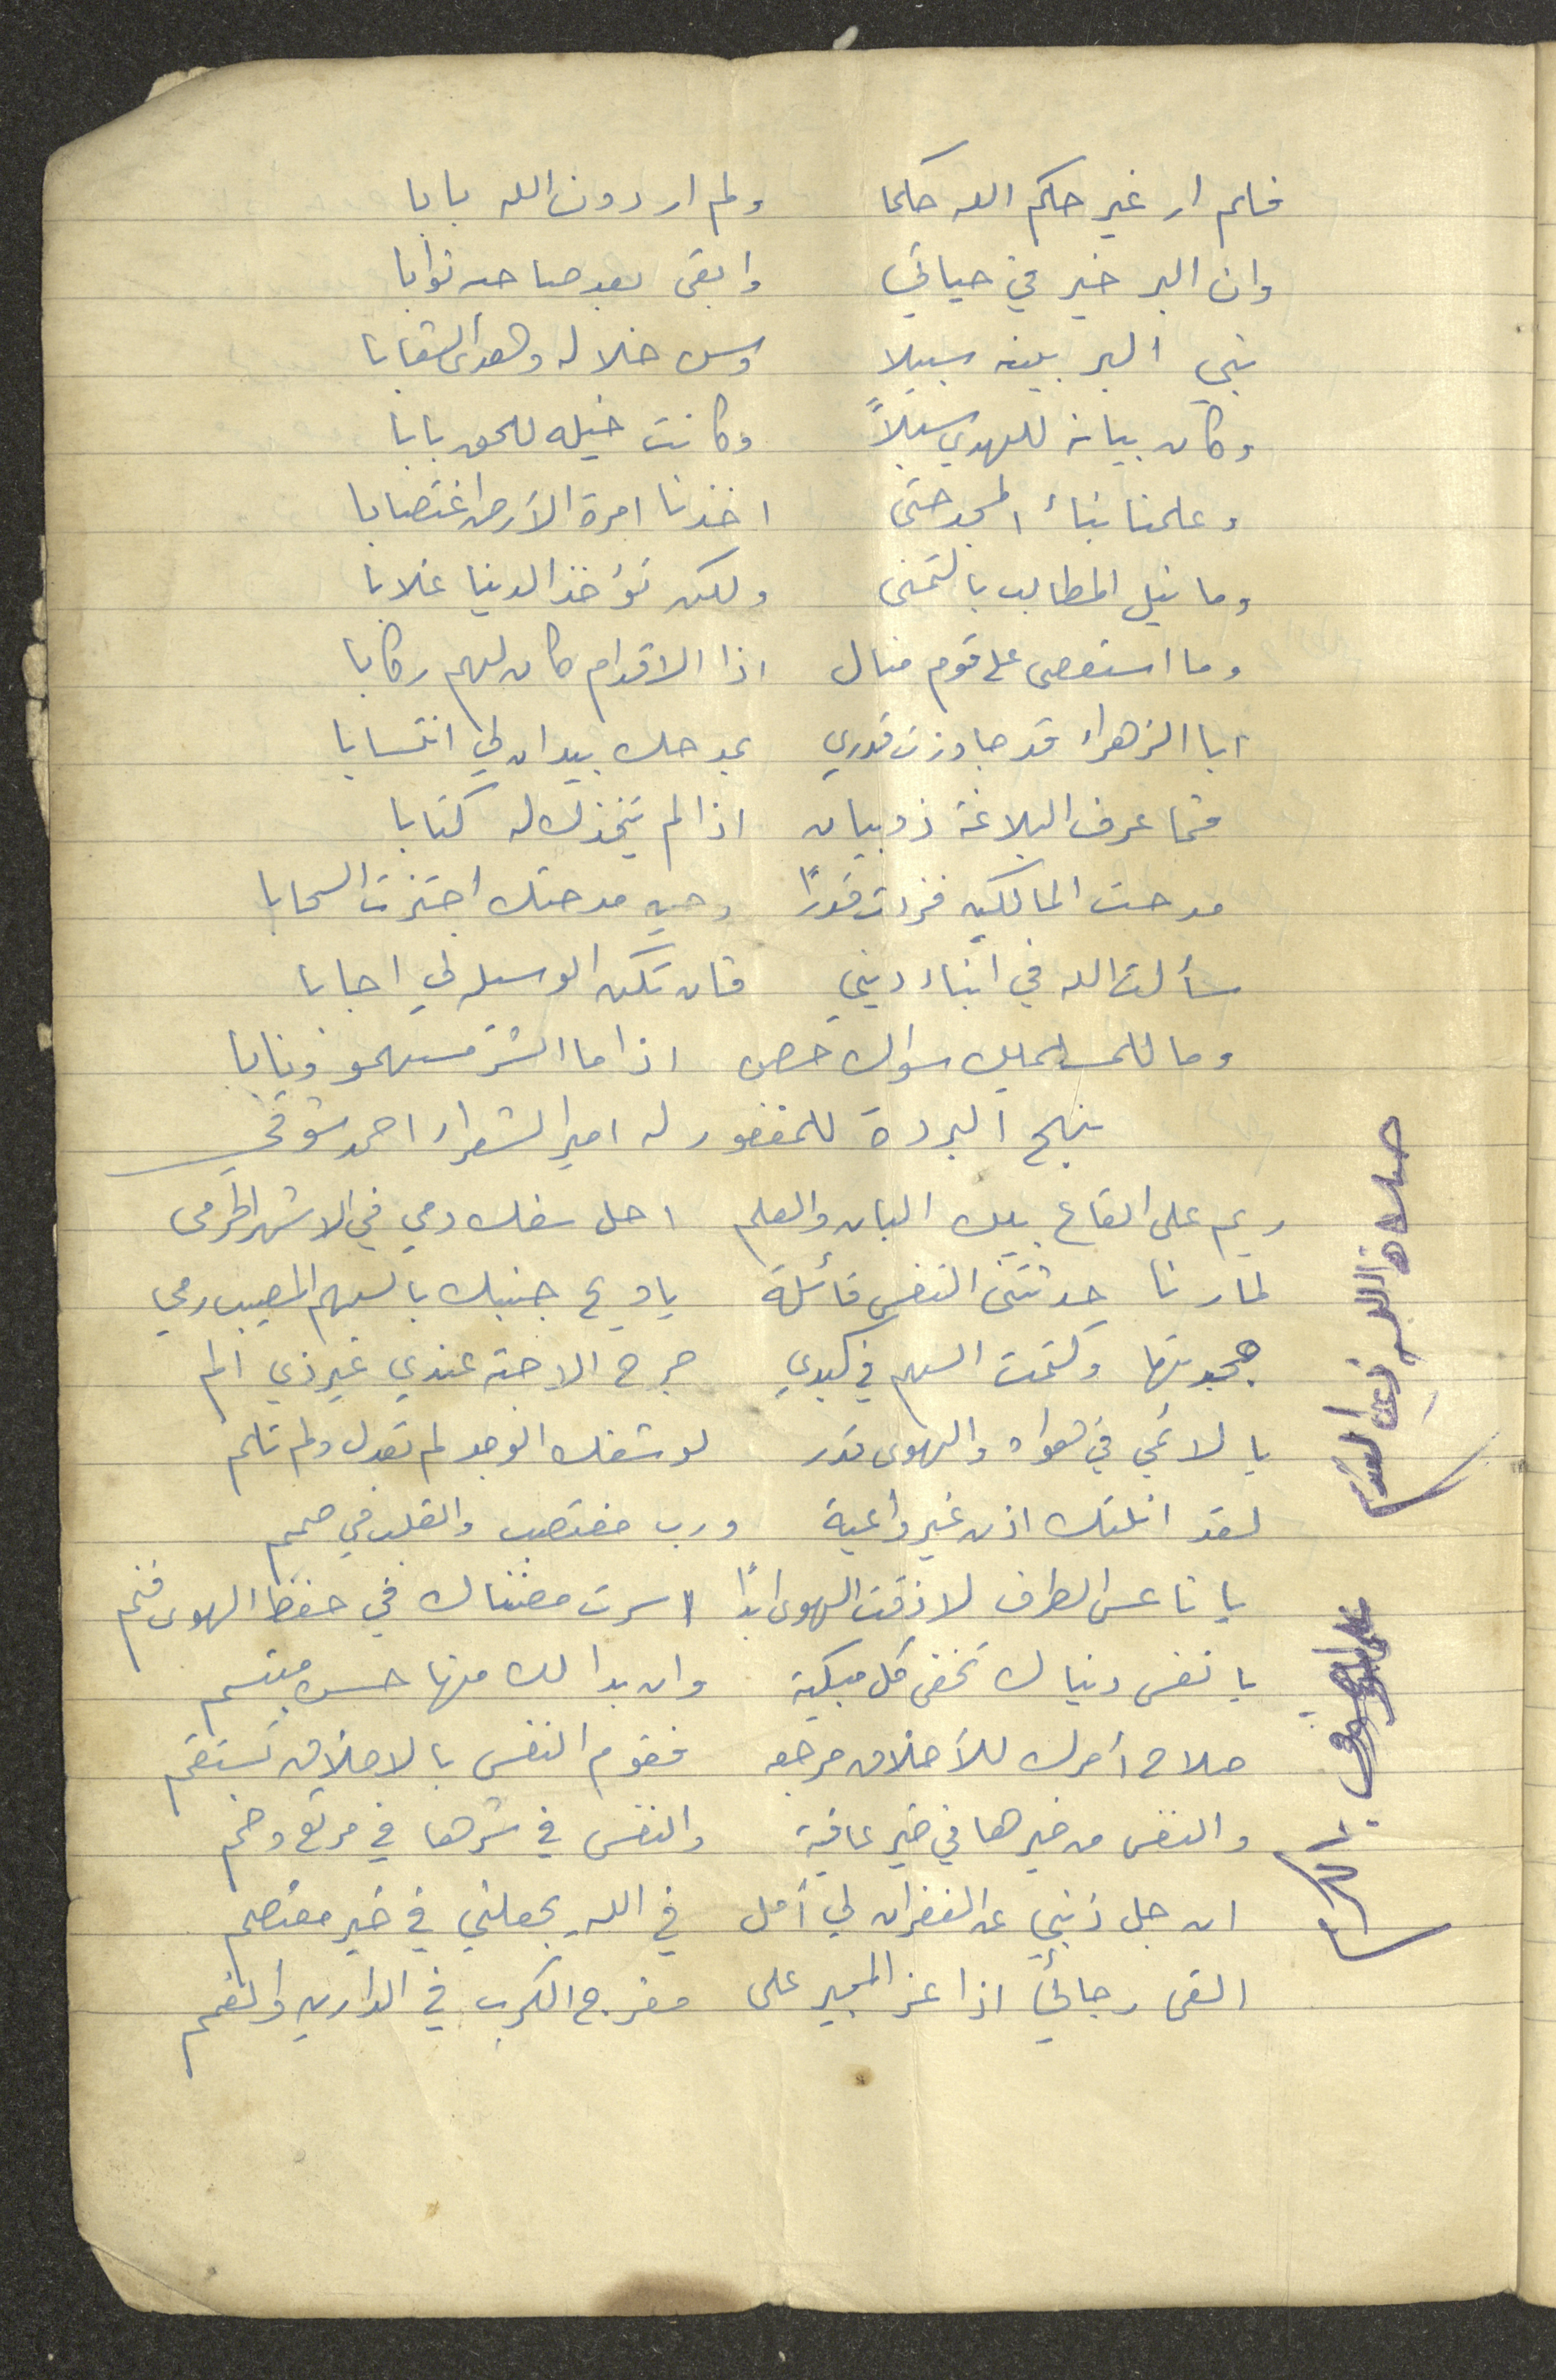 فلم ار غير حكم الله حكما ولم ار دون الله بابا
وان البر خير في حياتي وابقى بعد صاحبه ثوابا
نبي البر بينه سبيلا وسن خلاله وهدى الشعابا
وكان بيانه للهدي سبيلاً وكانت خيله للحق بابا
وعلمنا بناء المجد حتى اخذنا امرة الأرض اغتصابا
وما نيل المطالب بالتمنى ولكن تؤخذ الدنيا غلابا
وما استعصى على قوم منال اذا الاقدام كان لهم ركابا
ابا الزهراء قد جاوزت قدري بمدحك بيدان لي انتسابا
فما عرف البلاغة ذو بيان اذا لم يتخذك له كتابا
مدحت المالكين فزدت قدراً وحين مدحتك اجتزت السحابا
سألت الله في ابناء ديني فان تكن الوسيله لي اجابا
وما للمسلمين سواك حصن اذا ما الضر مسهمو ونابا
نهج البردة للمغفور له امير الشعراء احمد شوقي
ريم على القاع بين البان والعلم احل سفك دمي في الاشهر الحرمى
لما رنا حدثتنى النفس قائلة يا ويح جنبك بالسهم المصيب رمي
جحدتها وكتمت السهم في كبدي جرح الاحبه عندي غير ذي الم
يا لائمي في هواه والهوى قدر لو شفك الوجد لم تعدل ولم تلم
لقد انلتك اذن غير واعية ورب منتصب والقلب في صمم
يا ناعس الطرف لا ذقت الهوى ابداً اسهرت مضناك في حفظ الهوى فنم
يا نفس دنياك تخفى كل مبكية وان بدا لك منها حسن مبتسم
صلاح أمرك للأخلاق مرجعه فقوم النفس بالاخلاق تستقم
والنفس من خيرها في خير عافية والنفس في شرها في مرتع وخم
ان جل ذنبي عن الغفران لي أمل في الله يجعلني في خير معتصم
القى رجائي اذا عز المجير على مفرج الكرب في الدارين والغمم
صلاة الله